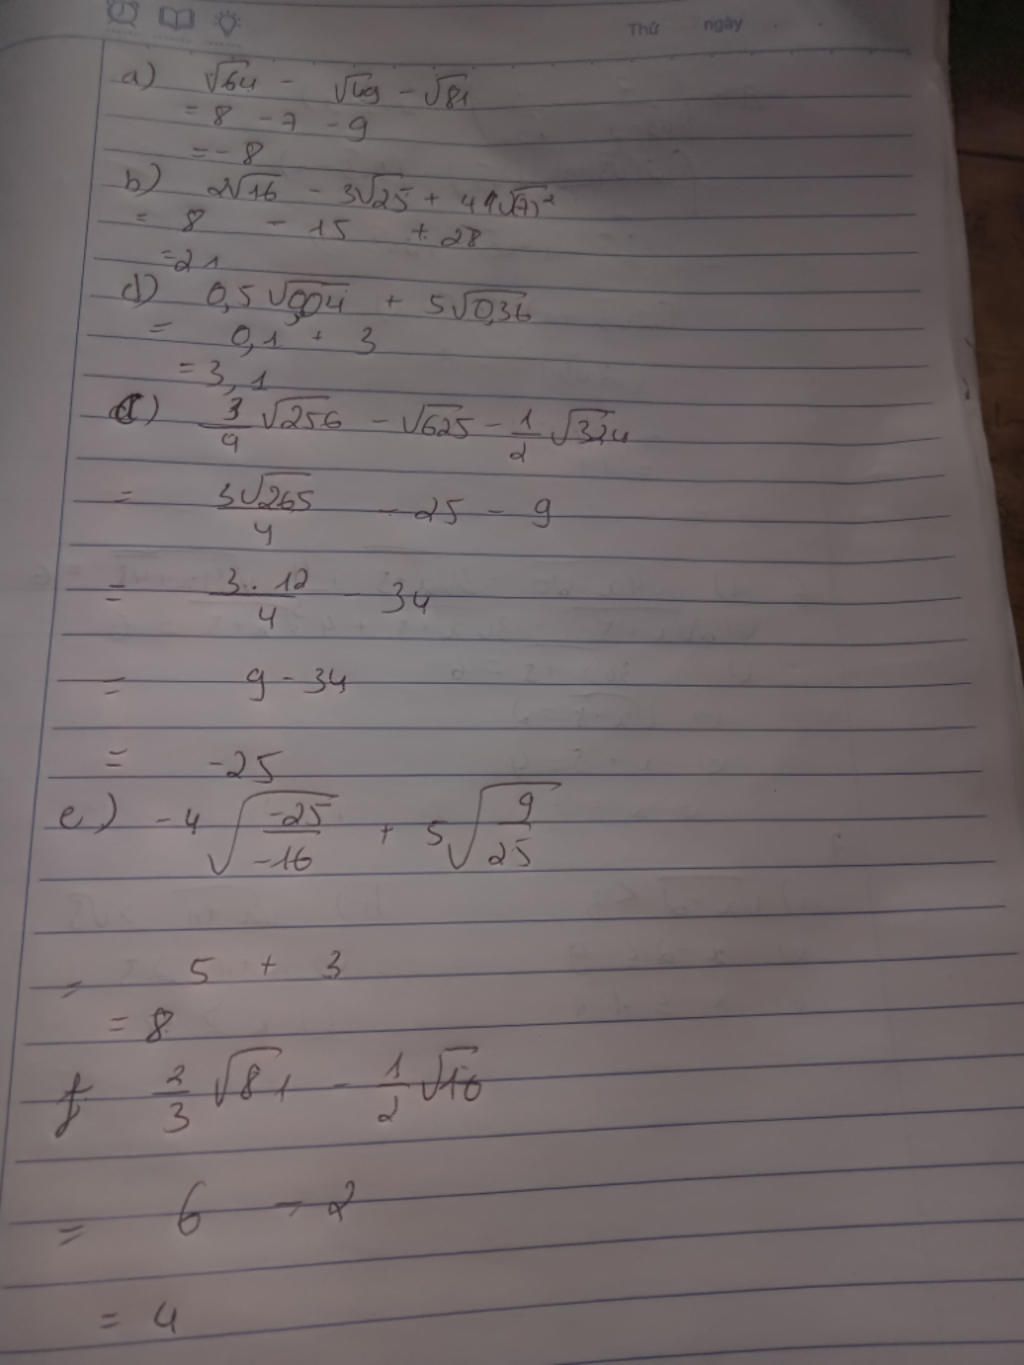 Thứ ngày
a) √64 - √49 - √81
= 8 - 7 - 9
= - 8
b) 2√16 - 3√25 + 4√(7)²
= 8 - 15 + 28
= 21
d) 0,5√0,04 + 5√0,36
= 0,1 + 3
= 3,1
d) 3/4 √256 - √625 - 1/2 √324
= 3√265/4 - 25 - 9
= 3. 12/4 - 34
= 9 - 34
= -25
e) -4 √(-25/-16) + 5 √(9/25)
= 5 + 3
= 8
f 2/3 √81 - 1/2 √16
= 6 - 2
= 4